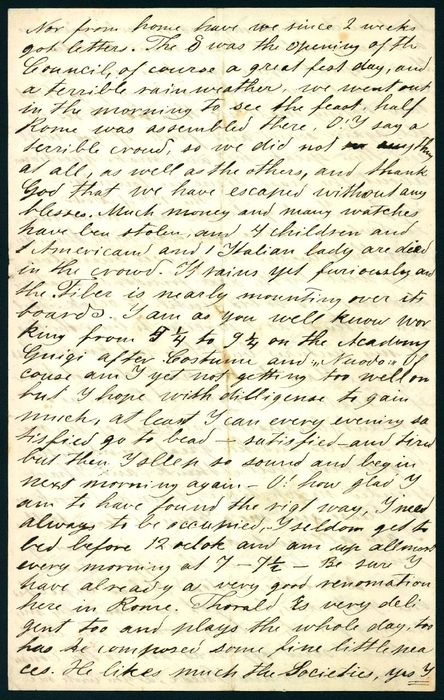 Nor from home have we since 2 weeks
got letters. The 8 was the opening of the
Council, of course a great fest day, and
a terrible rainweather, we went out
in the morning to see the feast, half
Rome was assembled there, O! I say a
terrible crowd, so we did not see any thing
at all, as well as the others, and thank
God that we have escaped without any
blesses. Much money and many watches
have ben stolen, and 4 children and
1 American, and 1 Italian lady are died
in the crowd. It rains yet furiously, and
the Tiber is nearly mounting over its
boards. I am as you well know wor
king from 5 1/4 to 9 1/2 on the Academy
Guigi after Costume and "Nuodo" Of
couse am I yet not getting too well on
but I hope with dilligense to gain
much, at least I can every evening sa
tisfied go to bead – satisfied – and tired
but then I sleep so sound and begin
next morning again – O! how glad I
am to have found the rigt way, I need
always to be occupied, I seldom get to
bed before 12 oclok and am up allmost
every morning at 7 – 7 1/2 – Be sure I
have already a very good renomation
here in Rome. Thorald is very deli
gent too and plays the whole day, too
has he composed some fine little pea
ces. He likes much the Societies, yes I